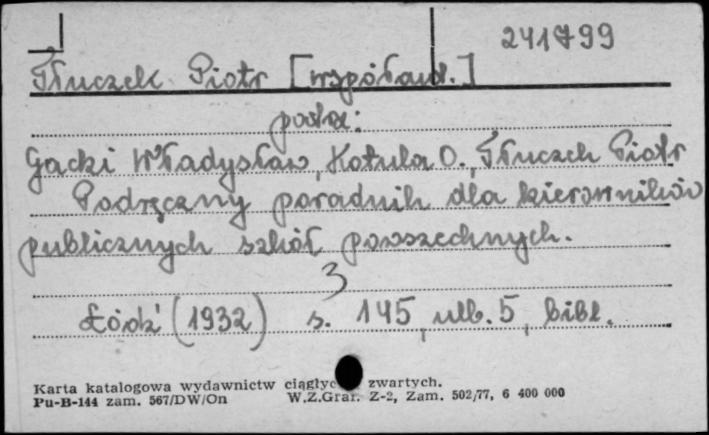 241799
Tłuczek Piotr [współaut.]
patrz:
Gacki Władysław, Kotula O., Tłuczek Piotr
Podręczny poradnik dla kierowników
publicznych szkół powszechnych.
3
Łódź (1932) s. 145, nlb. 5, bibl.
Karta katalogowa wydawnictw ciągłyc zwartych.
Pu-B-144 zam. 567/DW/On W.Z.Graf. Z-2, Zam. 502/77, 6 400 000